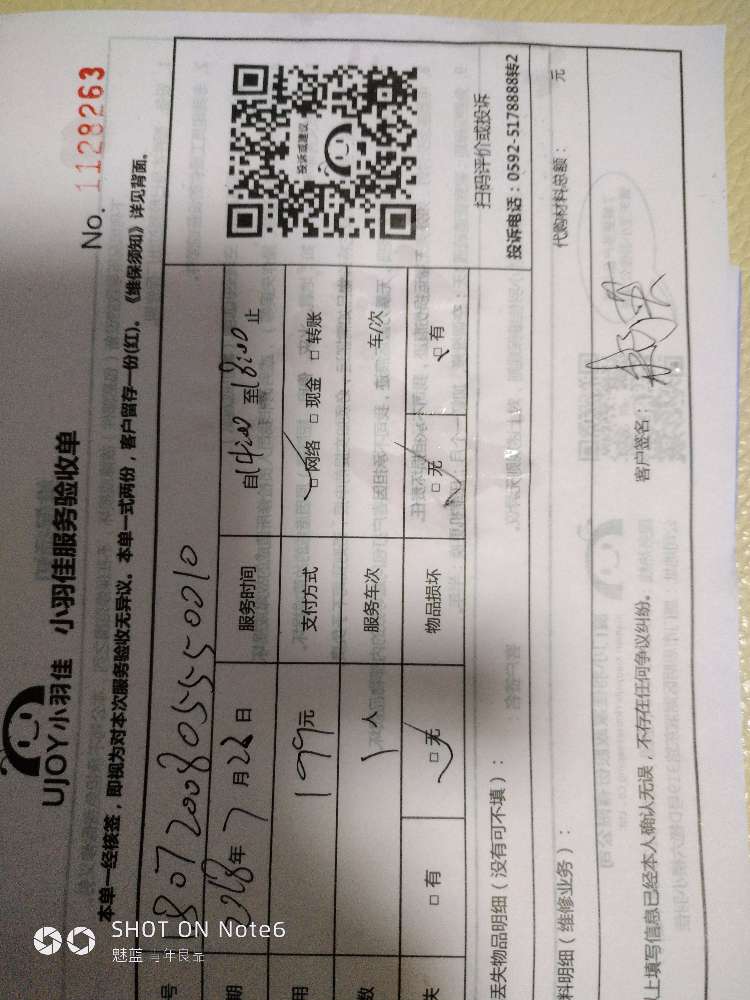 UJOY小羽佳 小羽佳服务验收单
No. 1128263
本单一经核签，即视为对本次服务验收无异议。本单一式两份，客户留存一份(红)。《维保须知》详见背面。
号
期 2018年7月28日 服务时间 自14:00至18:00止
用 199元 支付方式 □网络 □现金 □转账
数 1人 服务车次 车/次
失 □有 □无 物品损坏 □无 □有
投诉或建议
扫码评价或投诉
投诉电话：0592-5178888转2
丢失物品明细（没有可不填）：
料明细（维修业务）： 代购材料总额： 元
上填写信息已经本人确认无误，不存在任何争议纠纷。 客户签名：
SHOT ON Note6
魅蓝 青年良品